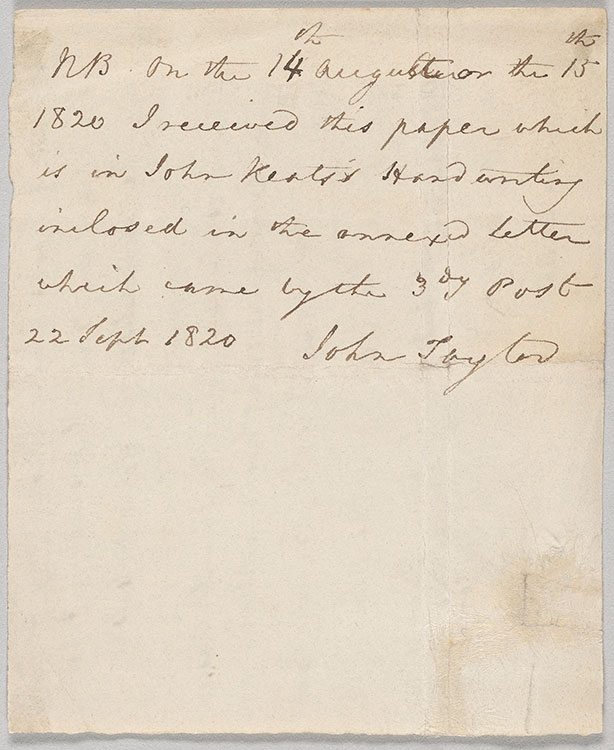 NB On the 14th August or the 15th
1820 I received this paper which
is in John Keats's Handwriting
inclosed in the annexed Letter
which came by the 3dy Post
22 Sept 1820 John Taylor